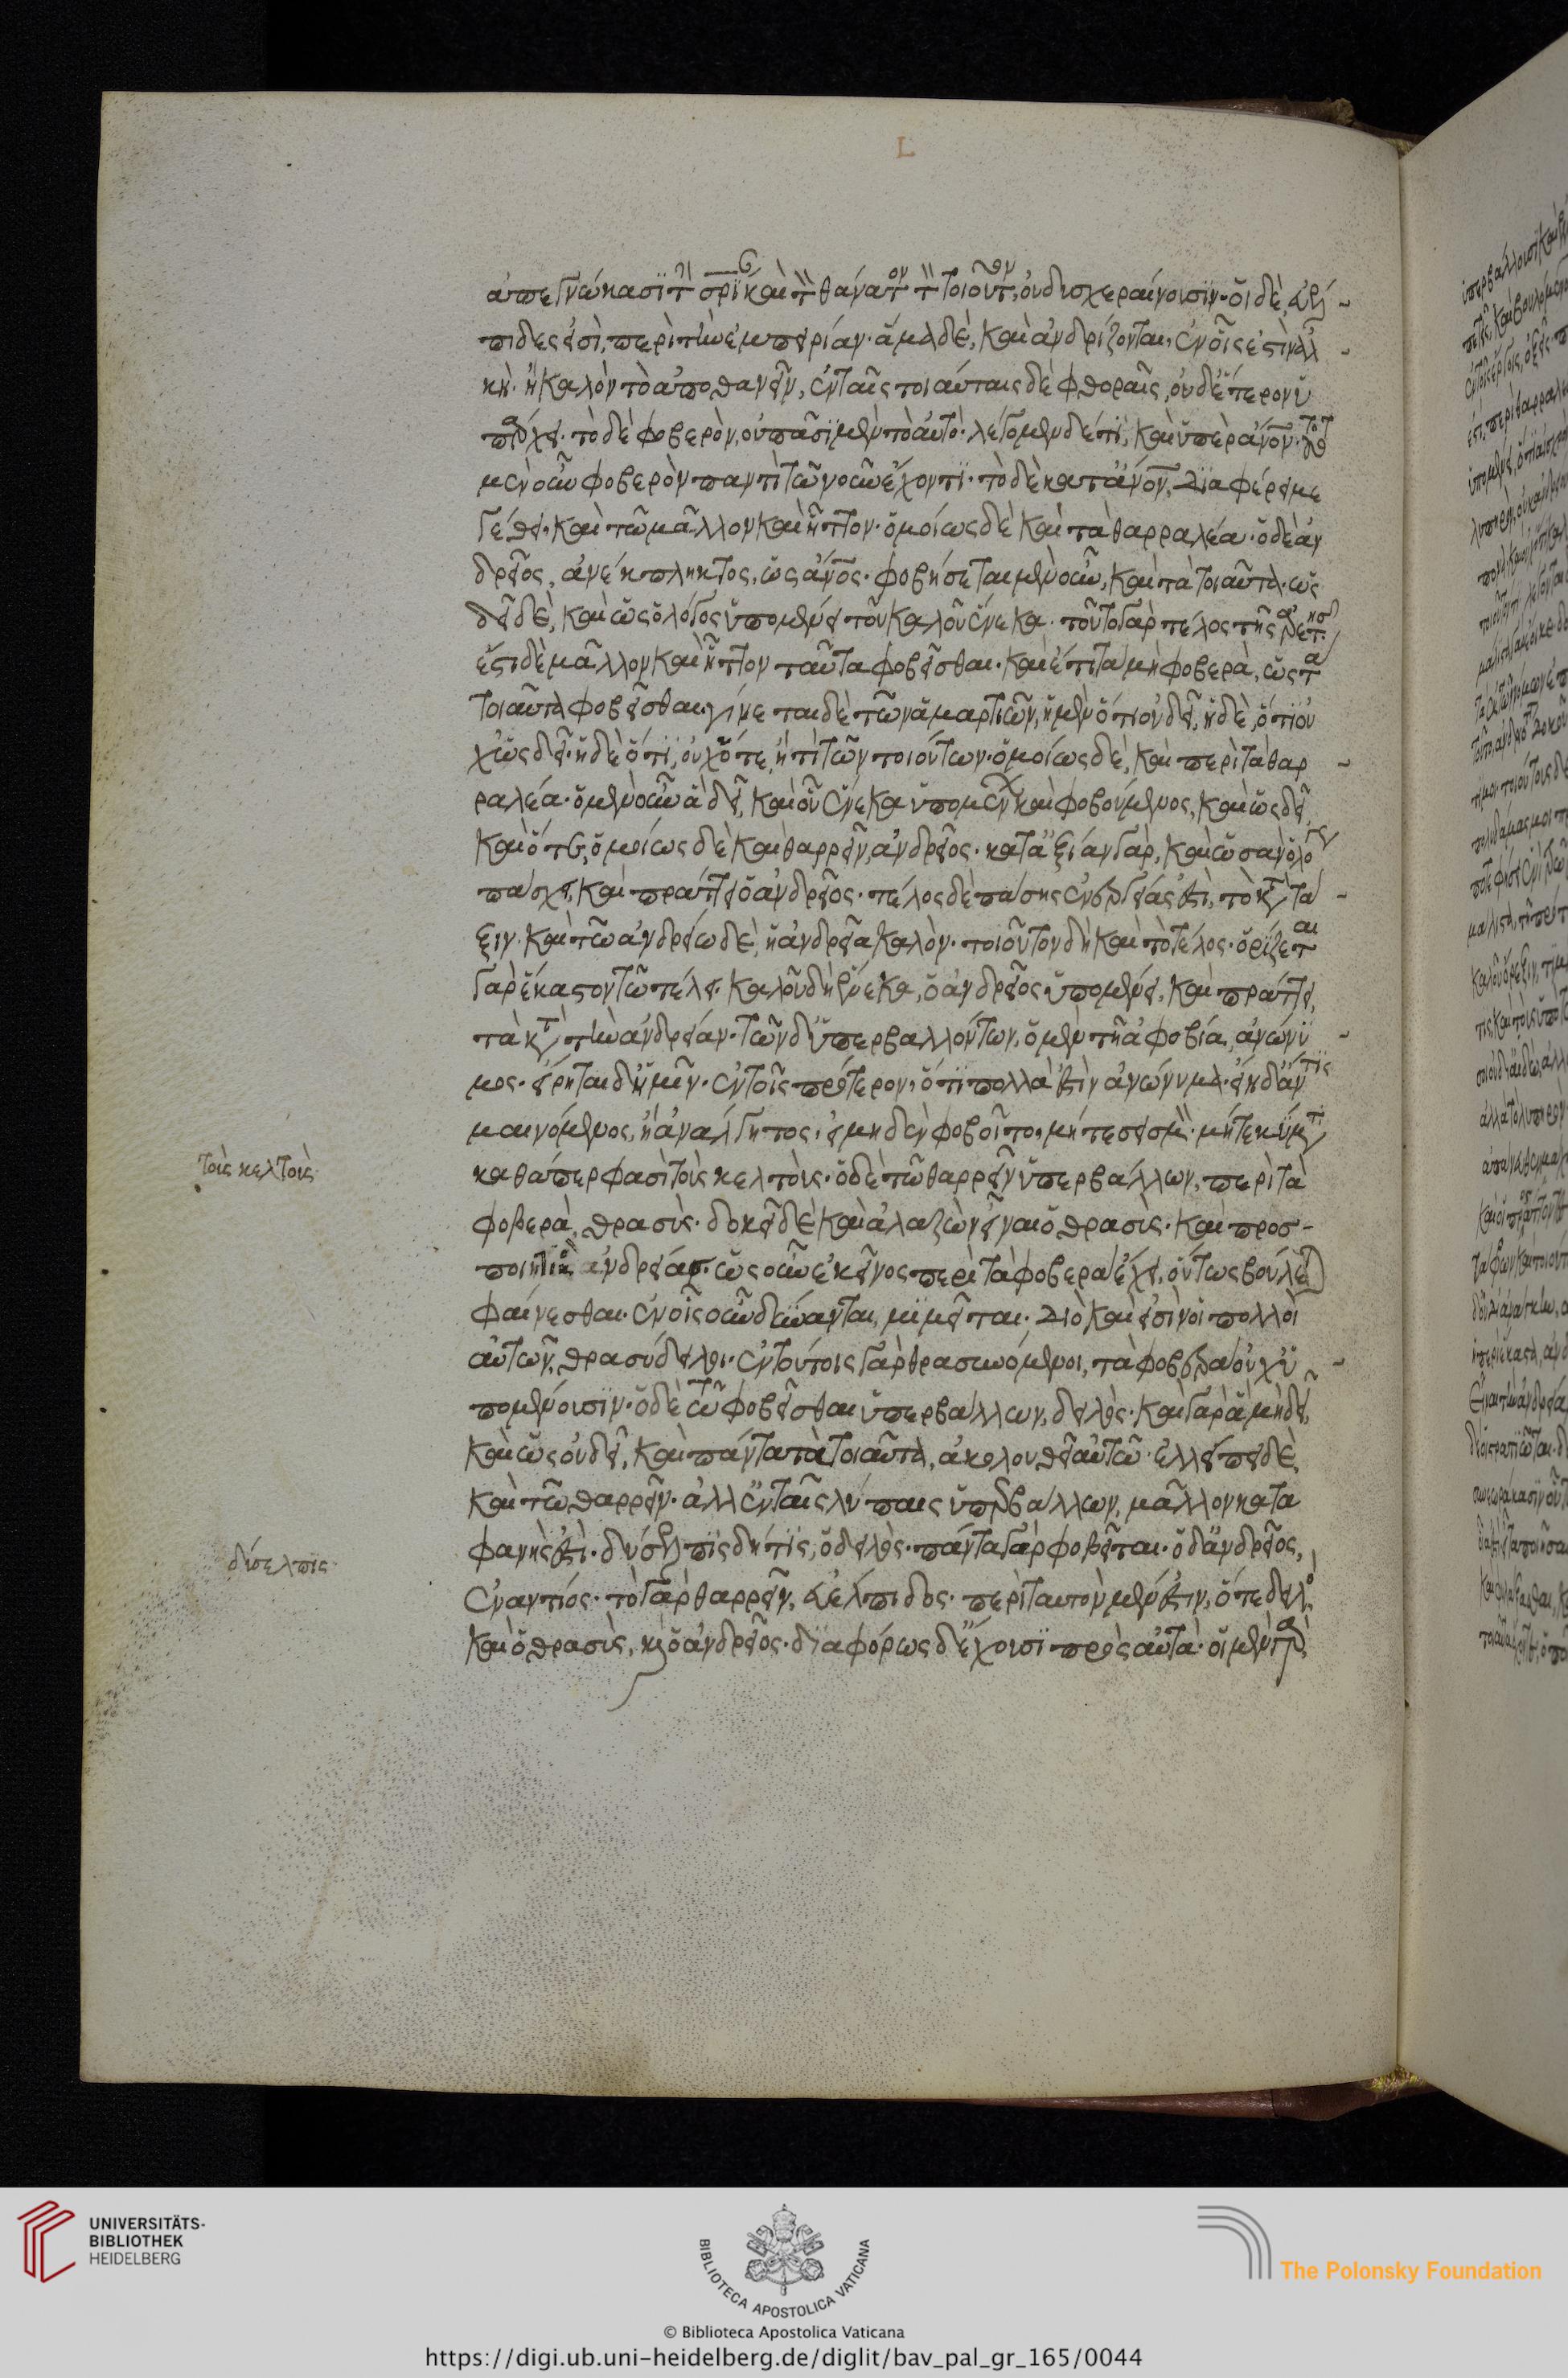 L
ἀπεγνώκασϊ τὴν σρΐαν καὶ τὸν θάνατον τὸν τοιοῦτον, οὐ δυσχεραίνουσϊν· οἱ δὲ, εὐέλ
πιδες εἰσὶ, περὶ τὴν ἐμπειρίαν· ἅμα δὲ, καὶ ἀνδρίζονται, ἐν οἷς ἐστὶν ἀλ
κὴ· ἢ καλὸν τὸ ἀποθανεῖν, ἐν ταῖς τοιαύταις δὲ φθοραῖς, οὐδέτερον ὑ
πάρχει· τὸ δὲ φοβερὸν, οὐ πᾶσϊ μὲν τὸ αὐτὸ· λέγομεν δέ τι, καὶ ὑπὲρ ἄνον· τοῦτο
μὲν οὖν φοβερὸν παντὶ τῶ νοῦν ἔχοντϊ· τὸ δὲ κατ' ἄνον, διαφέρει με
γέθει· καὶ τῶ μᾶλλον καὶ ἧττον· ὁμοίως δὲ καὶ τὰ θαρραλέα· ὁ δὲ ἀν
δρεῖος, ἀνέκπληκτος, ὡς ἄνος· φοβήσεται μὲν οὖν, καὶ τὰ τοιαῦτα· ὡς
δεῖ δὲ, καὶ ὡς ὁ λόγος ὑπομενεῖ τοῦ καλοῦ ἕνεκα· τοῦτο γὰρ τέλος τῆς ἀρετῆς·
ἔστι δὲ μᾶλλον καὶ ἧττον ταῦτα φοβεῖσθαι· καὶ ἔτι τὰ μὴ φοβερὰ, ὡς τὰ
τοιαῦτα φοβεῖσθαι· γίνεται δὲ τῶν ἁμαρτιῶν, ἡ μὲν ὅτι οὐ δεῖ, ἡ δὲ, ὅτϊ οὐ
χ' ὡς δεῖ· ἡ δὲ ὅτϊ, οὐχ ὅτε, ἤ τι τῶν τοιούτων· ὁμοίως δὲ, καὶ περὶ τὰ θαρ
ραλέα· ὁ μὲν οὖν ἃ δεῖ, καὶ οὗ ἕνεκα ὑπομένων καὶ φοβούμενος, καὶ ὡς δεῖ,
καὶ ὅτε, ὁμοίως δὲ καὶ θαρρεῖν, ἀνδρεῖος· κατ' ἀξίαν γὰρ, καὶ ὡς ἂν ὁ λόγος
πάσχει, καὶ πράττει ὁ ἀνδρεῖος· τέλος δὲ πάσης ἐνεργείας ἐστὶ, τὸ κατὰ τὰ
ξιν· καὶ τῶ ἀνδρείω δὲ, ἡ ἀνδρεία καλὸν· τοιοῦτον δὴ καὶ τὸ τέλος· ὁρίζεται
γὰρ ἕκαστον τῶ τέλει· καλοῦ δὴ ἕνεκα, ὁ ἀνδρεῖος ὑπομένει, καὶ πράττει,
τὰ κατὰ τὴν ἀνδρείαν· τῶν δ' ὑπερβαλλόντων, ὁ μὲν τῆ ἀφοβία, ἀνώνϋ
μος· εἴρηται δ' ἡμῖν· ἐν τοῖς πρότερον, ὅτϊ πολλά ἐστὶν ἀνώνυμα· εἴη δ' ἄν τις
μαινόμενος, ἢ ἀνάλγητος, εἰ μηδὲν φοβοῖτο, μήτε σεισμὸν· μήτε κύματα
καθάπερ φασὶ τοὺς κελτοὺς· ὁ δὲ τῶ θαρρεῖν ὑπερβάλλων, περὶ τὰ
φοβερὰ, θρασὺς· δοκεῖ δὲ καὶ ἀλαζὼν εἶναι ὁ θρασὺς· καὶ προσ-
ποιητικὸς ἀνδρείας· ὡς οὖν ἐκεῖνος περὶ τὰ φοβερὰ ἔχει, οὕτως βούλεται
φαίνεσθαι· ἐν οἷς οὖν δύναται, μϊμεῖται· διὸ καὶ εἰσὶν οἱ πολλοὶ
αὐτῶν, θρασύδειλοι· ἐν τούτοις γὰρ θρασυνόμενοι, τὰ φοβερὰ οὐχ ὑ
πομένουσϊν· ὁ δὲ τῶ φοβεῖσθαι ὑπερβάλλων, δειλὸς· καὶ γὰρ ἃ μὴ δεῖ,
καὶ ὡς οὐ δεῖ, καὶ πάντα τὰ τοιαῦτα, ἀκολουθεῖ αὐτῶ· ἐλλείπει δὲ,
καὶ τῶ θαρρεῖν· ἀλλ' ἐν ταῖς λύπαις ὑπερβάλλων, μᾶλλον κατα
φανής ἐστὶ· δύσελπϊς δή τϊς, ὁ δειλὸς· πάντα γὰρ φοβεῖται· ὁ δ' ἀνδρεῖος,
ἐναντίος· τὸ γὰρ θαρρεῖν, εὐέλπιδος· περὶ ταυτὸν μέν ἐστιν, ὅ τε δειλὸς,
καὶ ὁ θρασὺς, καὶ ὁ ἀνδρεῖος· διαφόρως δ' ἔχουσϊ πρὸς αὐτά· οἱ μὲν γὰρ
τοὺς κελτούς
δύσελπϊς
UNIVERSITÄTS-
BIBLIOTHEK
HEIDELBERG
BIBLIOTECA APOSTOLICA VATICANA
The Polonsky Foundation
© Biblioteca Apostolica Vaticana
https://digi.ub.uni-heidelberg.de/diglit/bav_pal_gr_165/0044